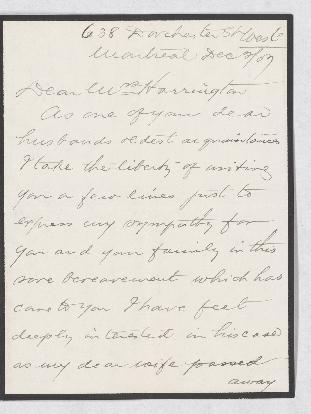 638 Dorchester St West
Montreal Dec 2/07
Dear Mrs Harrington
As one of your dear
husbands oldest acquaintances
I take the liberty of writing
you a few lines just to
express my sympathy for
you and your family in this
sore bereavement which has
came to you I have feet
deeply interested in his case
as my dear wife passed
away